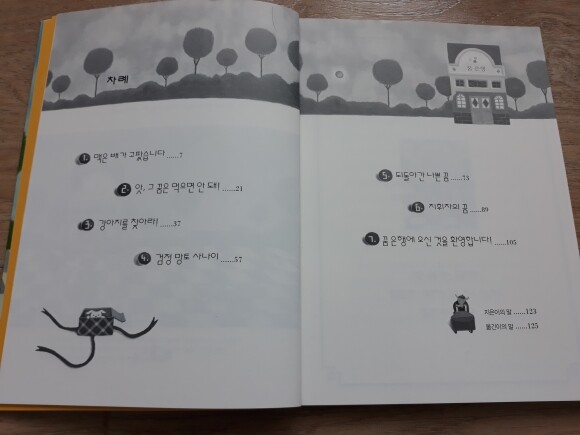 차례
1. 맥은 배가 고팠습니다 ......7
2. 앗, 그 꿈은 먹으면 안 돼! ......21
3. 강아지를 찾아라! ......37
4. 검정 망토 사나이 ......57
꿈 은행
5. 되돌아간 나쁜 꿈 ......73
6. 지휘자의 꿈 ......89
7. 꿈 은행에 오신 것을 환영합니다! ......105
지은이의 말 ......123
옮긴이의 말 ......125